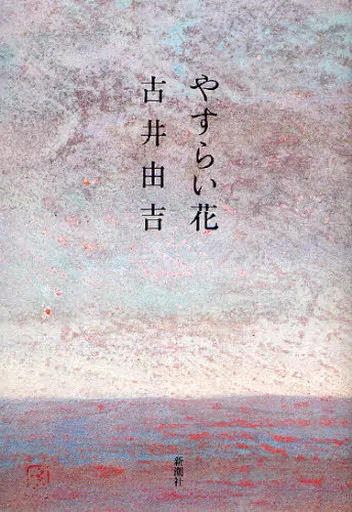 やすらい花
古井由吉
新潮社